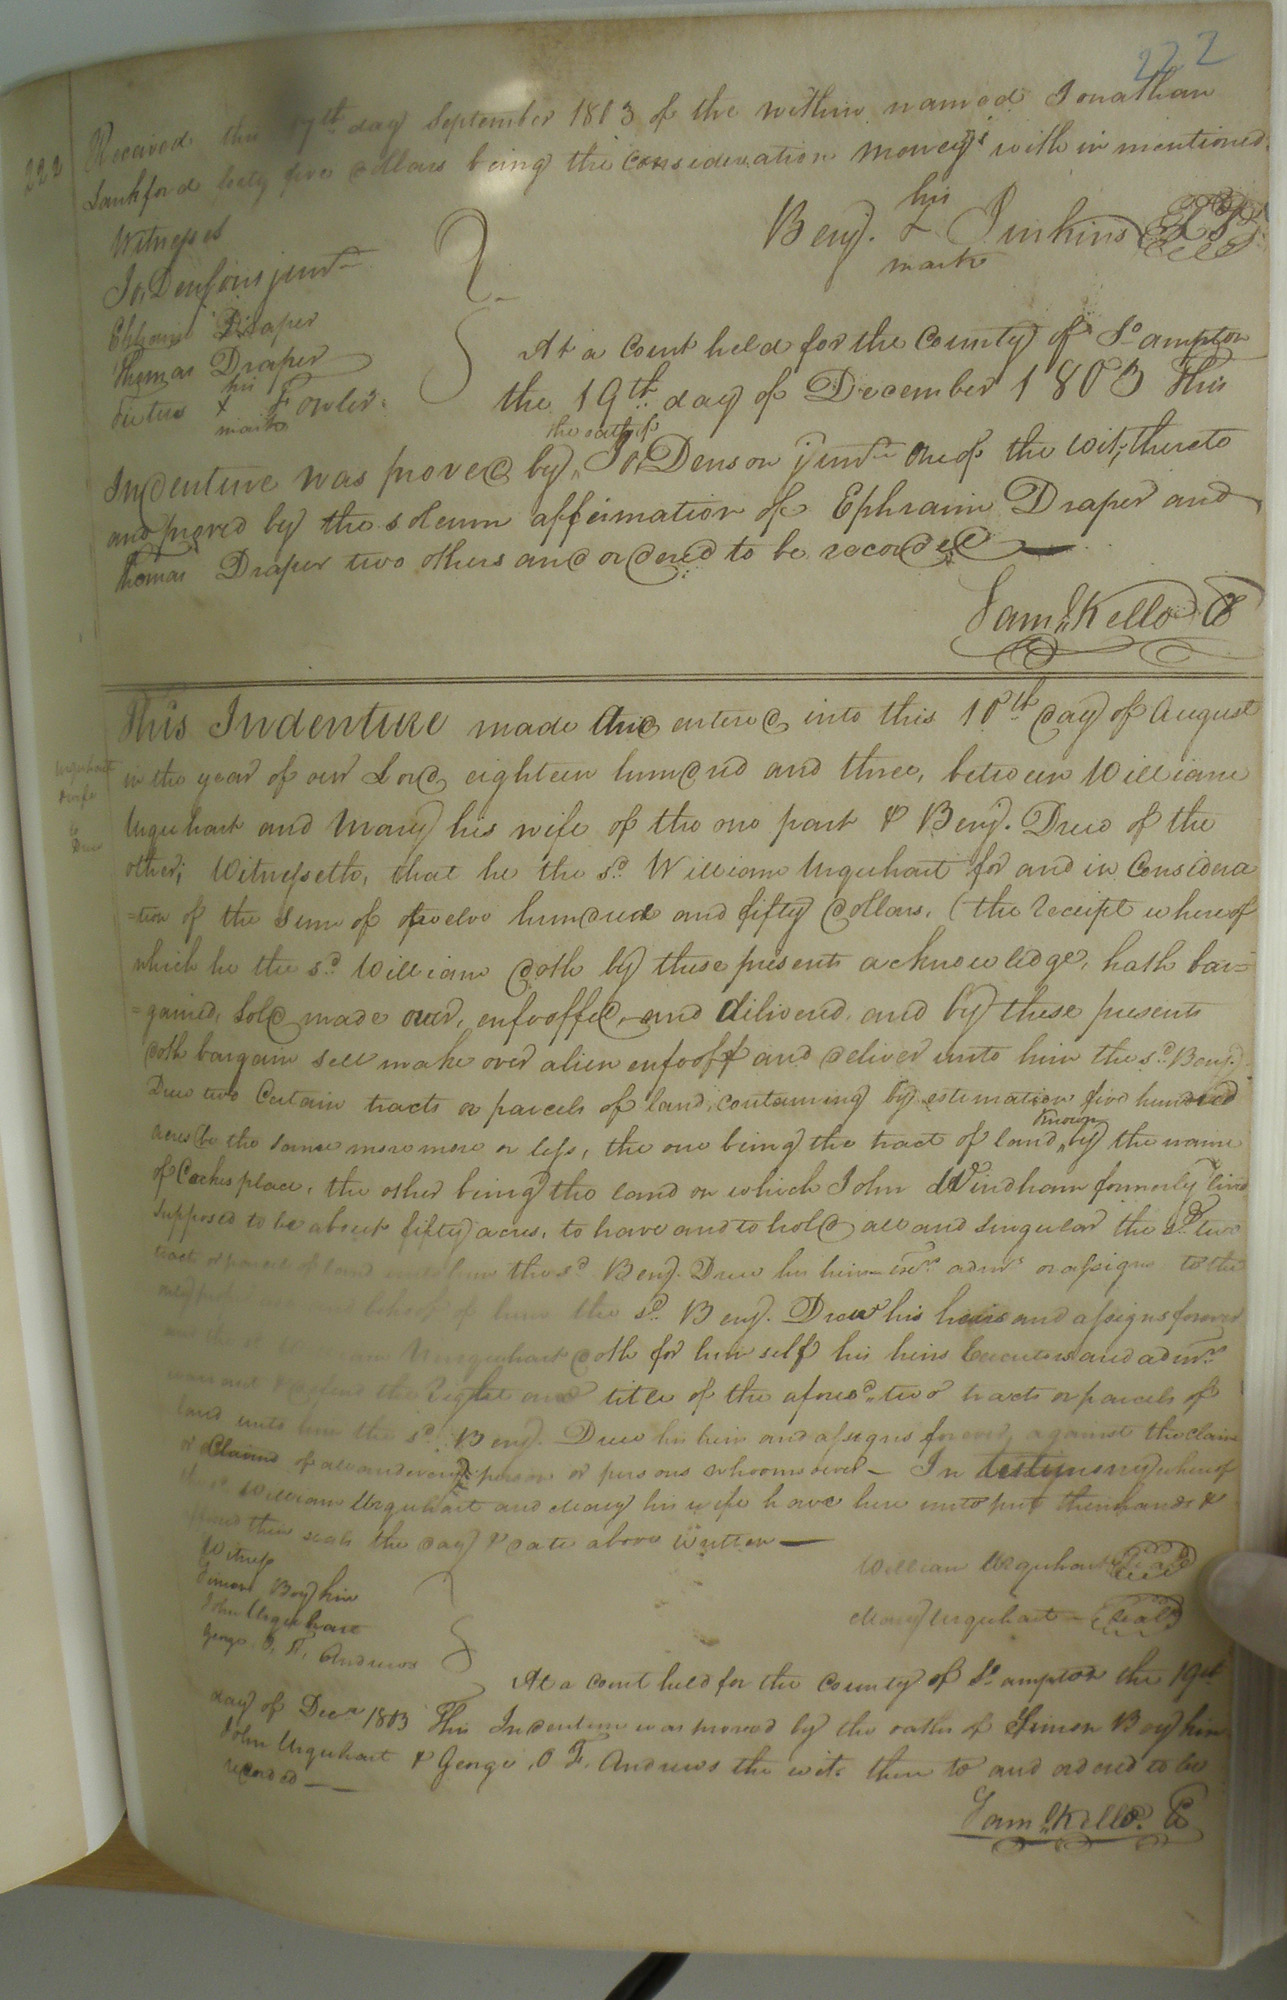 222
222
Received this 17th day September 1803 of the within named Jonathan
Lankford forty five dollars being the consideration moneys with in mentioned.
his
Benj. + Jinkins
mark
Witnesses
Jo. Denson junr
Ephraim Draper
Thomas Draper
his
+ Fowler
mark
At a Court held for the County of So. ampton
the 19th day of December 1803 This
the oath of
Indenture was proved by Jo. Denson junr one of the wit; thereto
and proved by the solemn affirmation of Ephraim Draper and
Thomas Draper two others and ordered to be recorded
Saml. Kello C
This Indenture made and entered into this 10th day of August
in the year of our Lord eighteen hundred and three, between William
Urquhart and Mary his wife of the one part & Benj. Drew of the
other; Witnesseth, that he the sd. William Urquhart for and in Considera
=tion of the Sum of twelve hundred and fifty dollars, (the receipt whereof
which he the sd. William doth by these presents acknowledge, hath bar=
=gained, Sold made over, enfeoffed, and delivered, and by these presents
doth bargain sell make over alien enfeoff and deliver unto him the sd. Benj.
Drew two Certain tracts or parcels of land, containing by estimation five hundred
known
acres (be the same more more or less, the one being the tract of land by the name
of Cockes place, the other being the land on which John Windham formerly lived
Supposed to be about fifty acres, to have and to hold all and Singular the sd. two
tract or parcels of land unto him the sd. Benj. Drew his heirs exrs. admrs or assigns to the
behoof of him the sd. Benj. Drew his heirs and assigns forever
and the sd. William Urquhart doth for himself his heirs Executors and admrs.
warrant & defend the Right and title of the aforesd. two tracts or parcels of
land unto him the sd. Benj. Drew his heirs and assigns forever, against the claim
or Claims of all and every person or persons whoomsoever — In testimony whereof
William Urquhart and Mary his wife have here unto put their hands &
their seals the day & date above Written —
William Urquhart Seal
Mary Urquhart — Seal
Witness
Simon Boykin
John Urquhart
George O. F. Andrews
At a Court held for the County of So. ampton the 19th
day of Decr 1803 This Indenture was proved by the oaths of Simon Boykin
John Urquhart & George O F. Andrews the wits. there to and ordered to be
recorded —
Saml. Kello. C
Urquhart
& wife
to
Drew